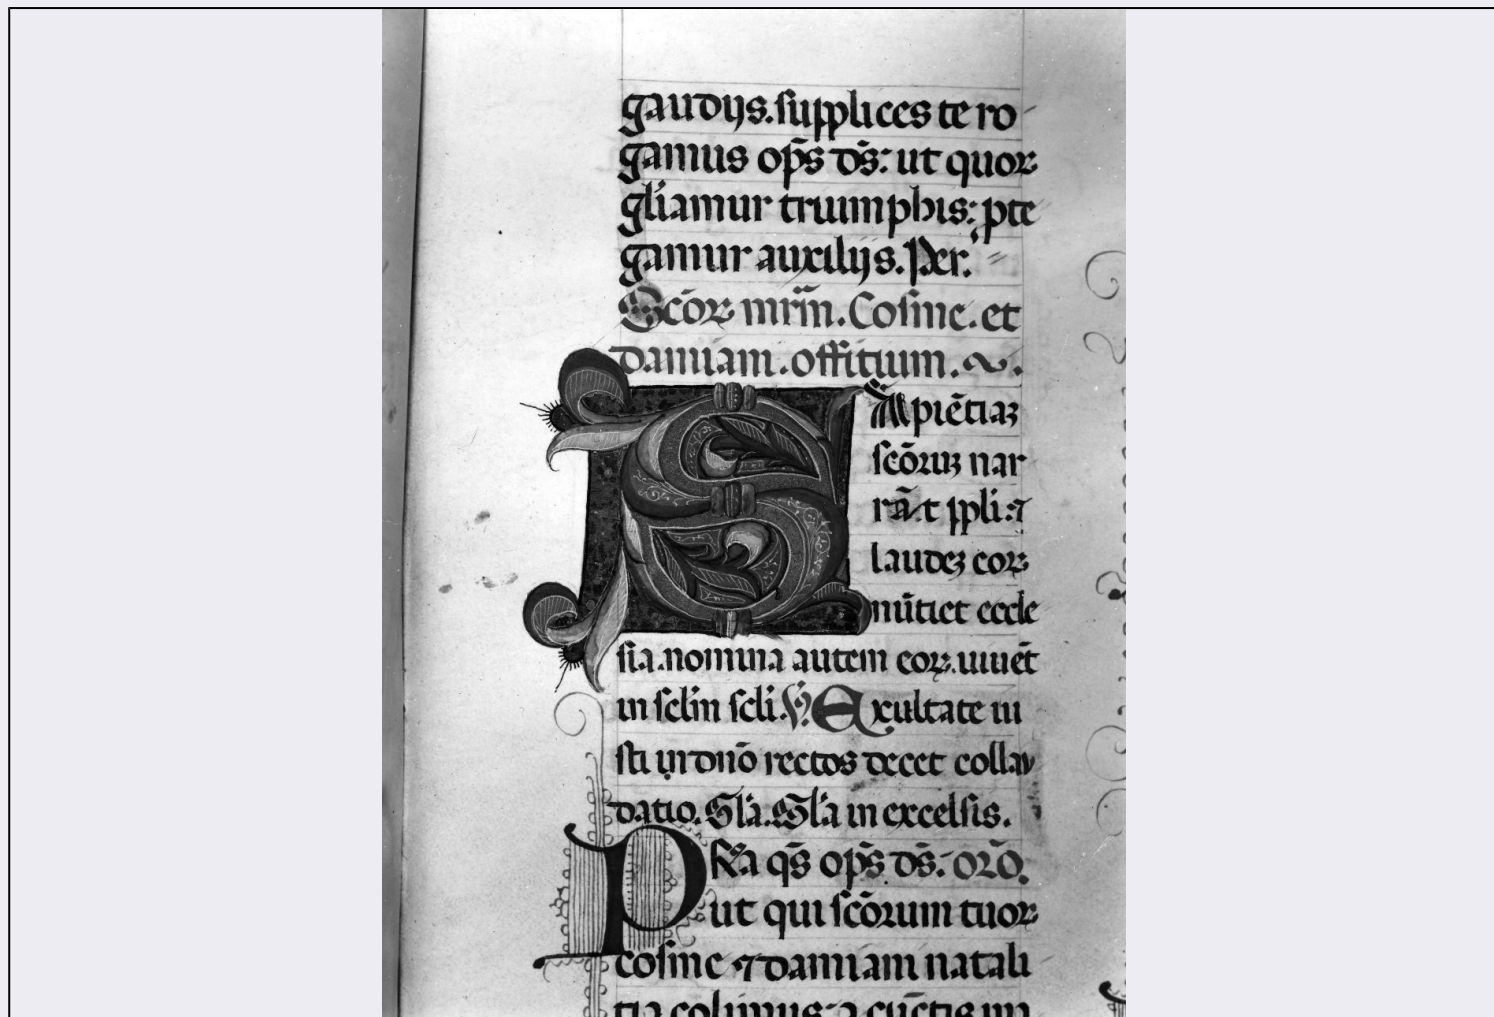 gaudijs. supplices te ro
gamus op̄s ds̄: ut quoꝝ
gl̄iamur triumphis: pte
gamur auxilijs. Per.
Scōꝝ mr̄m̄. Cosme. et
damiani. offitium.
SApiētiaꝫ
scōruꝫ nar
rā.t ppli: ⁊
laudeꝫ eoꝝ
nūtiet eccle
sia. nomina autem eoꝝ. uiuēt
in sclm̄ scli. ℣. Exultate iu
sti in dn̄o rectos decet collau
datio. Gl̄a. Gl̄a in excelsis.
PRa qs̄ op̄s ds̄. orō.
ut qui scōrum tuoꝝ
cosme ⁊ damiani natali
tia colimus: a cūctis im